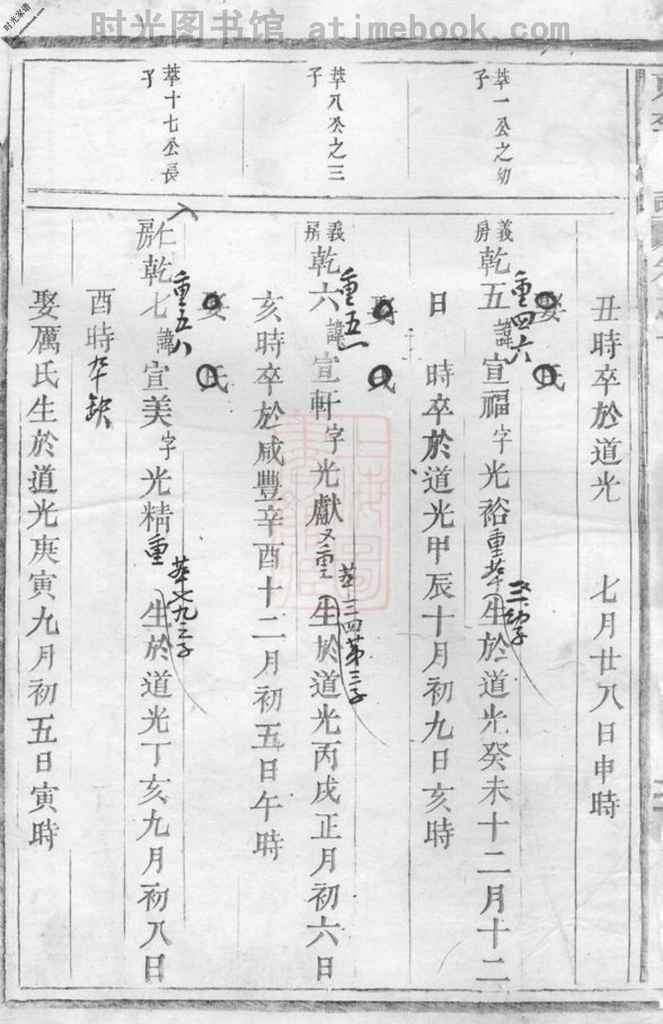 时光图书馆 atimebook.com
时光家谱
丑時卒於道光 七月廿八日申時
娶 氏
萃一公之幼子
義房乾五諱宣福字光裕 生於道光癸未十二月十二
重四六
重萃
幼子
日 時卒於道光甲辰十月初九日亥時
娶 氏
萃八公之三子
義房乾六諱宣軒字光獻 生於道光丙戌正月初六日
重五一
又重
萃三四第三子
亥時卒於咸豐辛酉十二月初五日午時
娶 氏
萃十七公長子
仁房乾七諱宣美字光精 生於道光丁亥九月初八日
重五八
重
酉時卒缺
娶厲氏生於道光庚寅九月初五日寅時